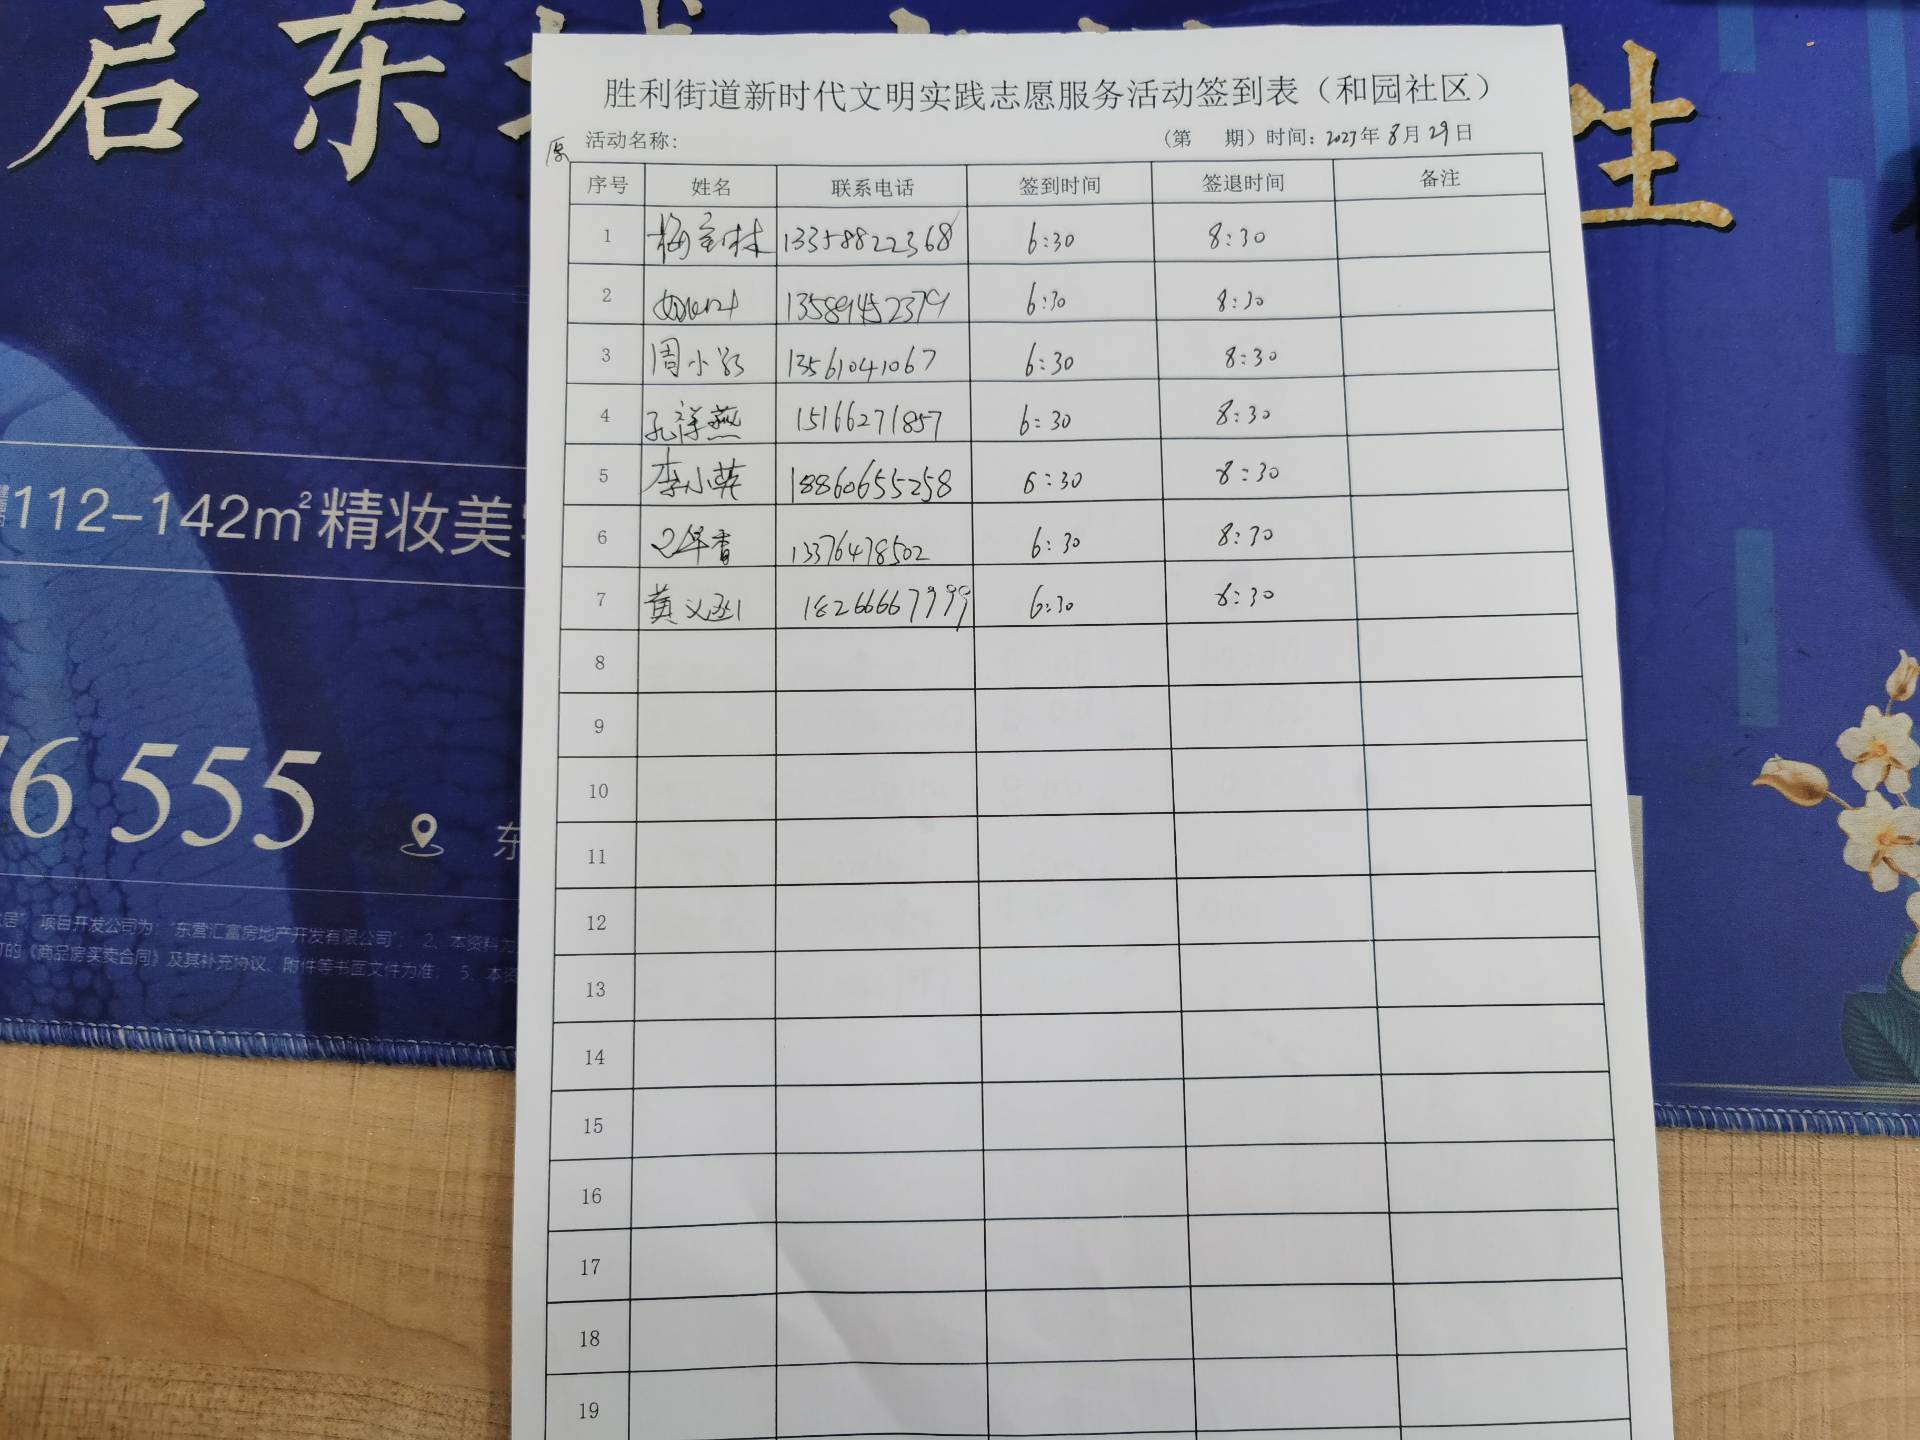 启东
生
112-142m²精妆美
16 555
东
项目开发公司为："东营汇富房地产开发有限公司"； 2、本资料为
的《商品房买卖合同》及其补充协议、附件等书面文件为准； 5、本资
胜利街道新时代文明实践志愿服务活动签到表（和园社区）
活动名称： （第 期）时间：2023年8月29日
序号 姓名 联系电话 签到时间 签退时间 备注
1 13358822368 6:30 8:30
2 13589452379 6:30 8:30
3 周小 13561041067 6:30 8:30
4 孔祥燕 15166271857 6:30 8:30
5 李小英 18860655258 6:30 8:30
6 13376478502 6:30 8:30
7 黄义 18266667999 6:30 8:30
8
9
10
11
12
13
14
15
16
17
18
19